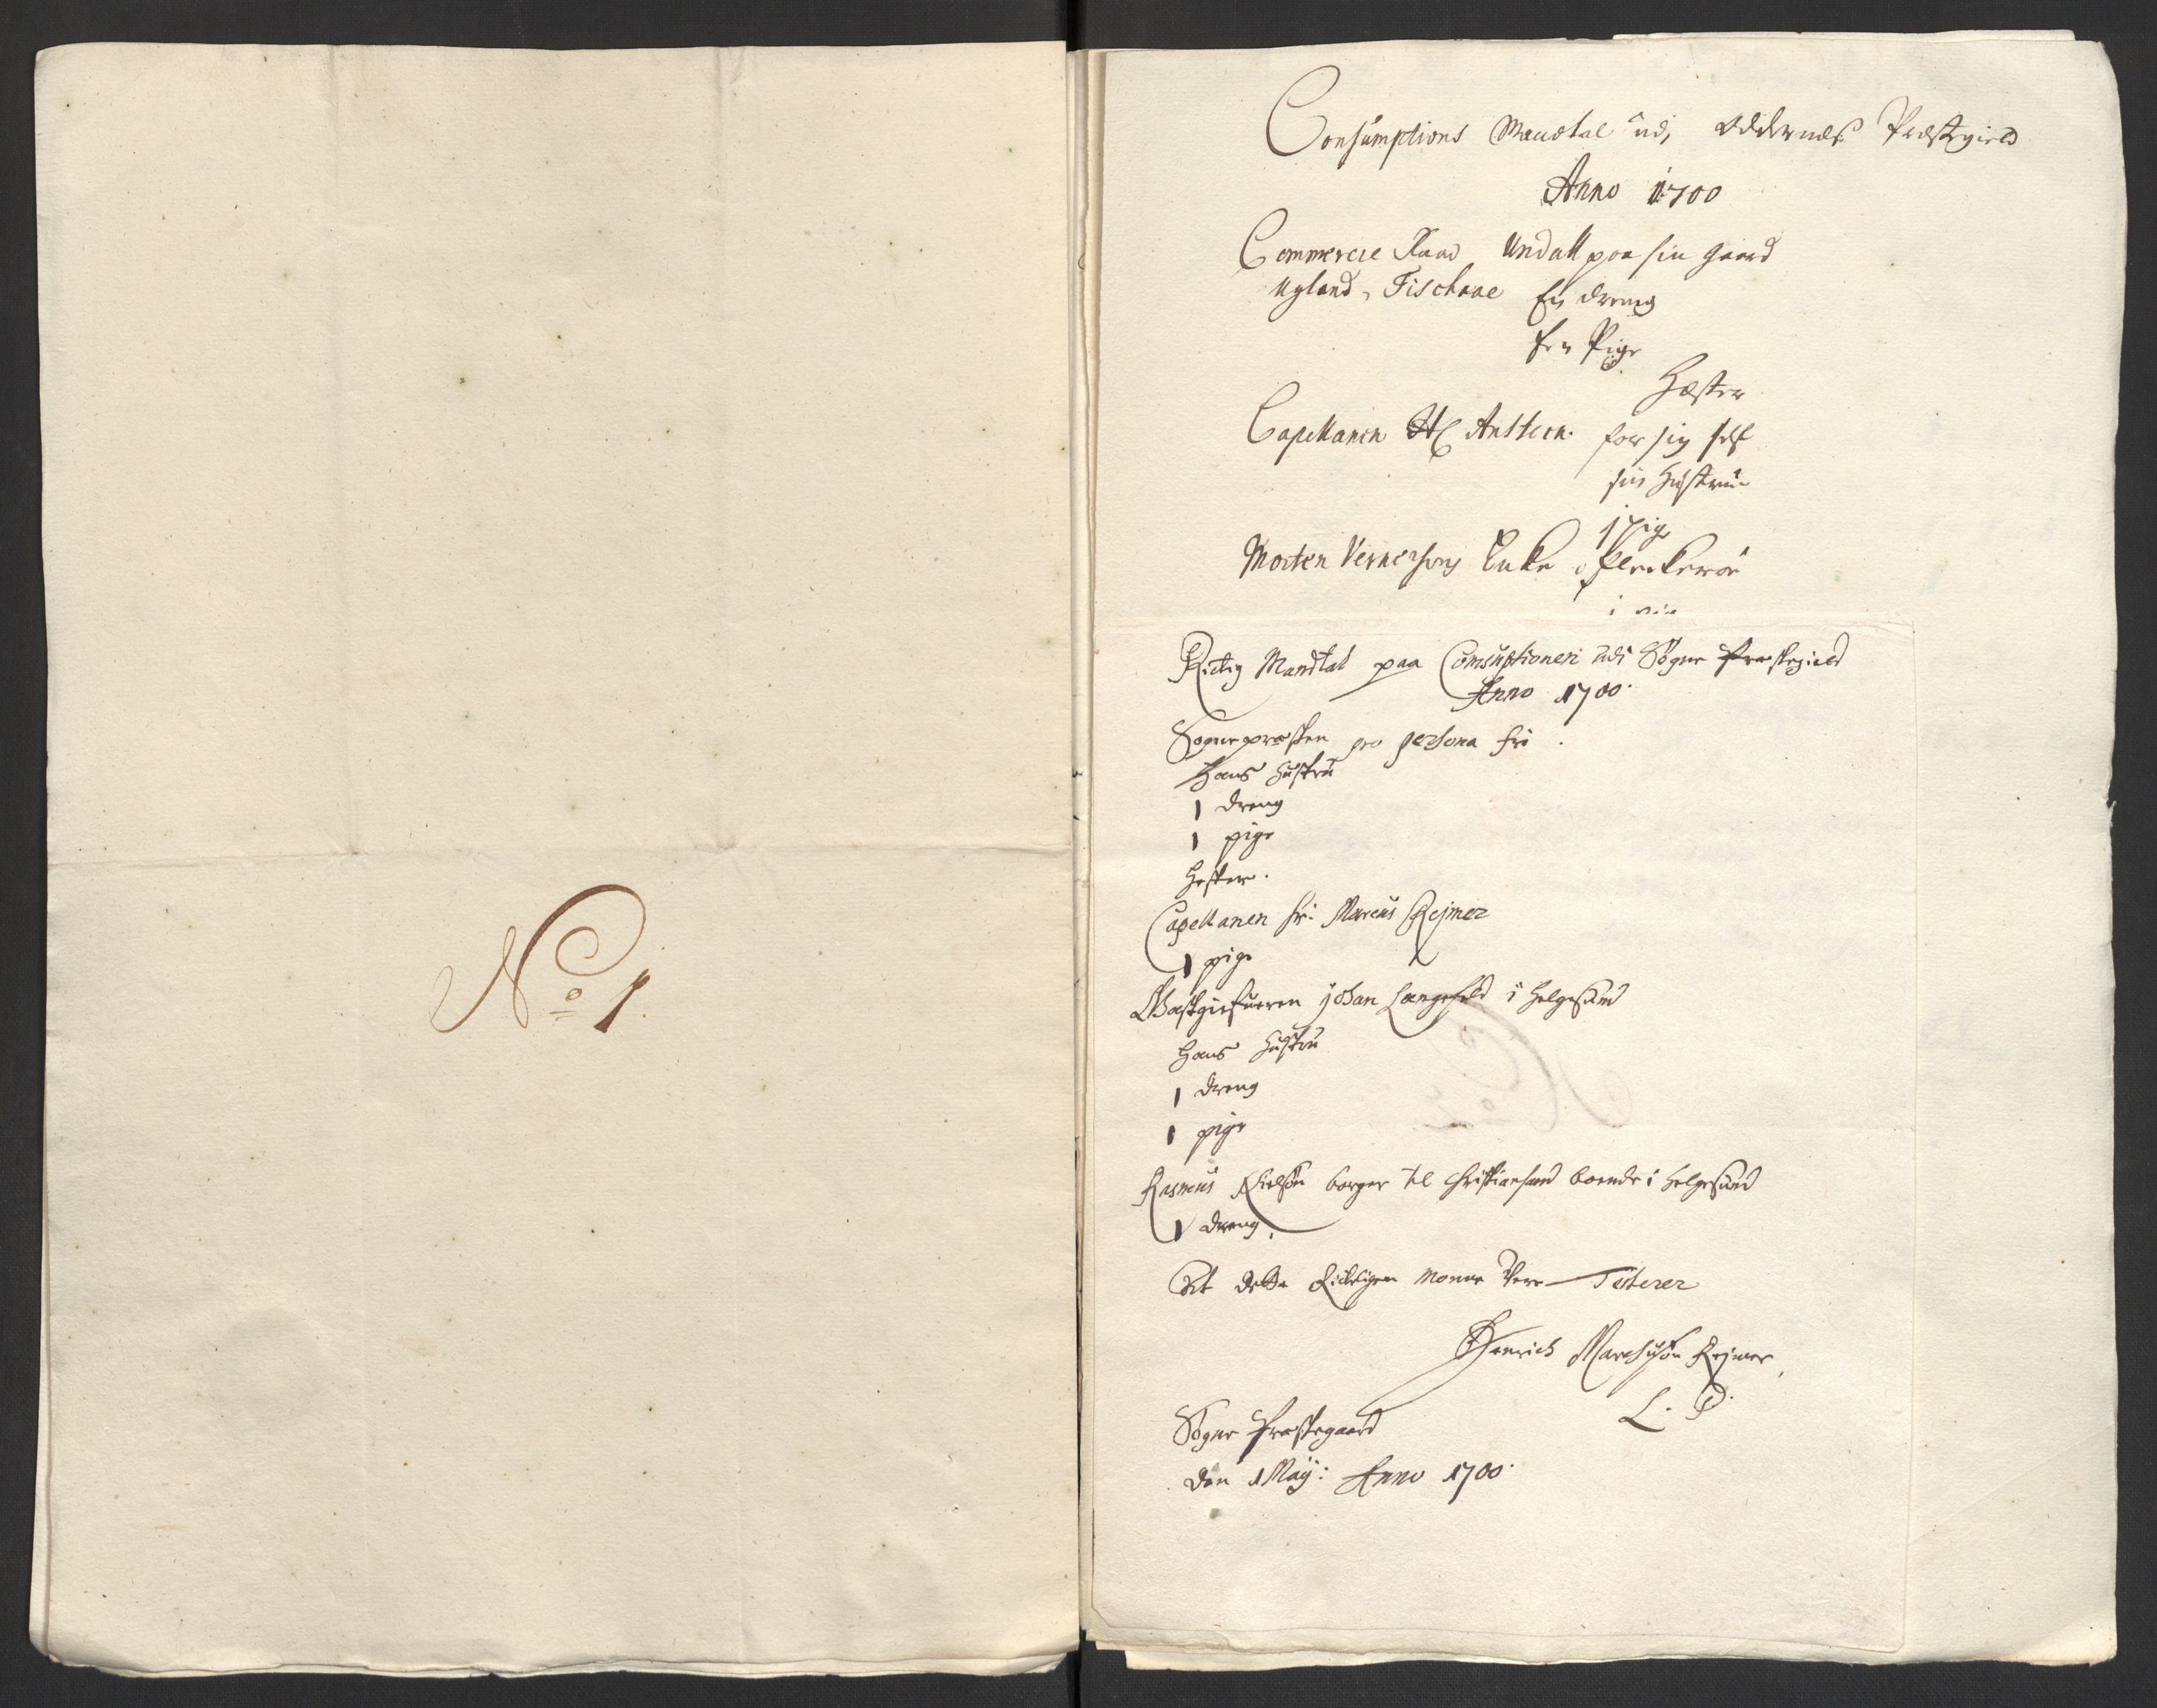 No 1.
Consumptions Mandtal udj Oddernes Præstegield
Anno 1700
Commercie Raad Undall paa sin gaard
Ugland, Fischaae En dreng
En Pige
Hester
Capellanen Hr Austein for sig self
sin Hustrue
1 Pige
Morten Vernersøns Enke i Flekerøe
Rictig Mandtal paa Comsuptionen udi Sögne Præstegield
Anno 1700.
Sognepræsten pro persona fri.
Hans Hustru
1 dreng
1 pige
Hester.
Capellanen hr: Marcus Rejmer
1 pige
Gastgiefueren Johan Langefeld i Helgesund
Hans Hustru
1 dreng
1 pige
Rasmus Nielsön borger til Christiansand boende i Helgesund
1 dreng.
At dette Rictigen monne Vere Testerer
Henrich Marchusön Rejmer,
L. P.
Sögne Præstegaard
den 1 Maÿ: Anno 1700.